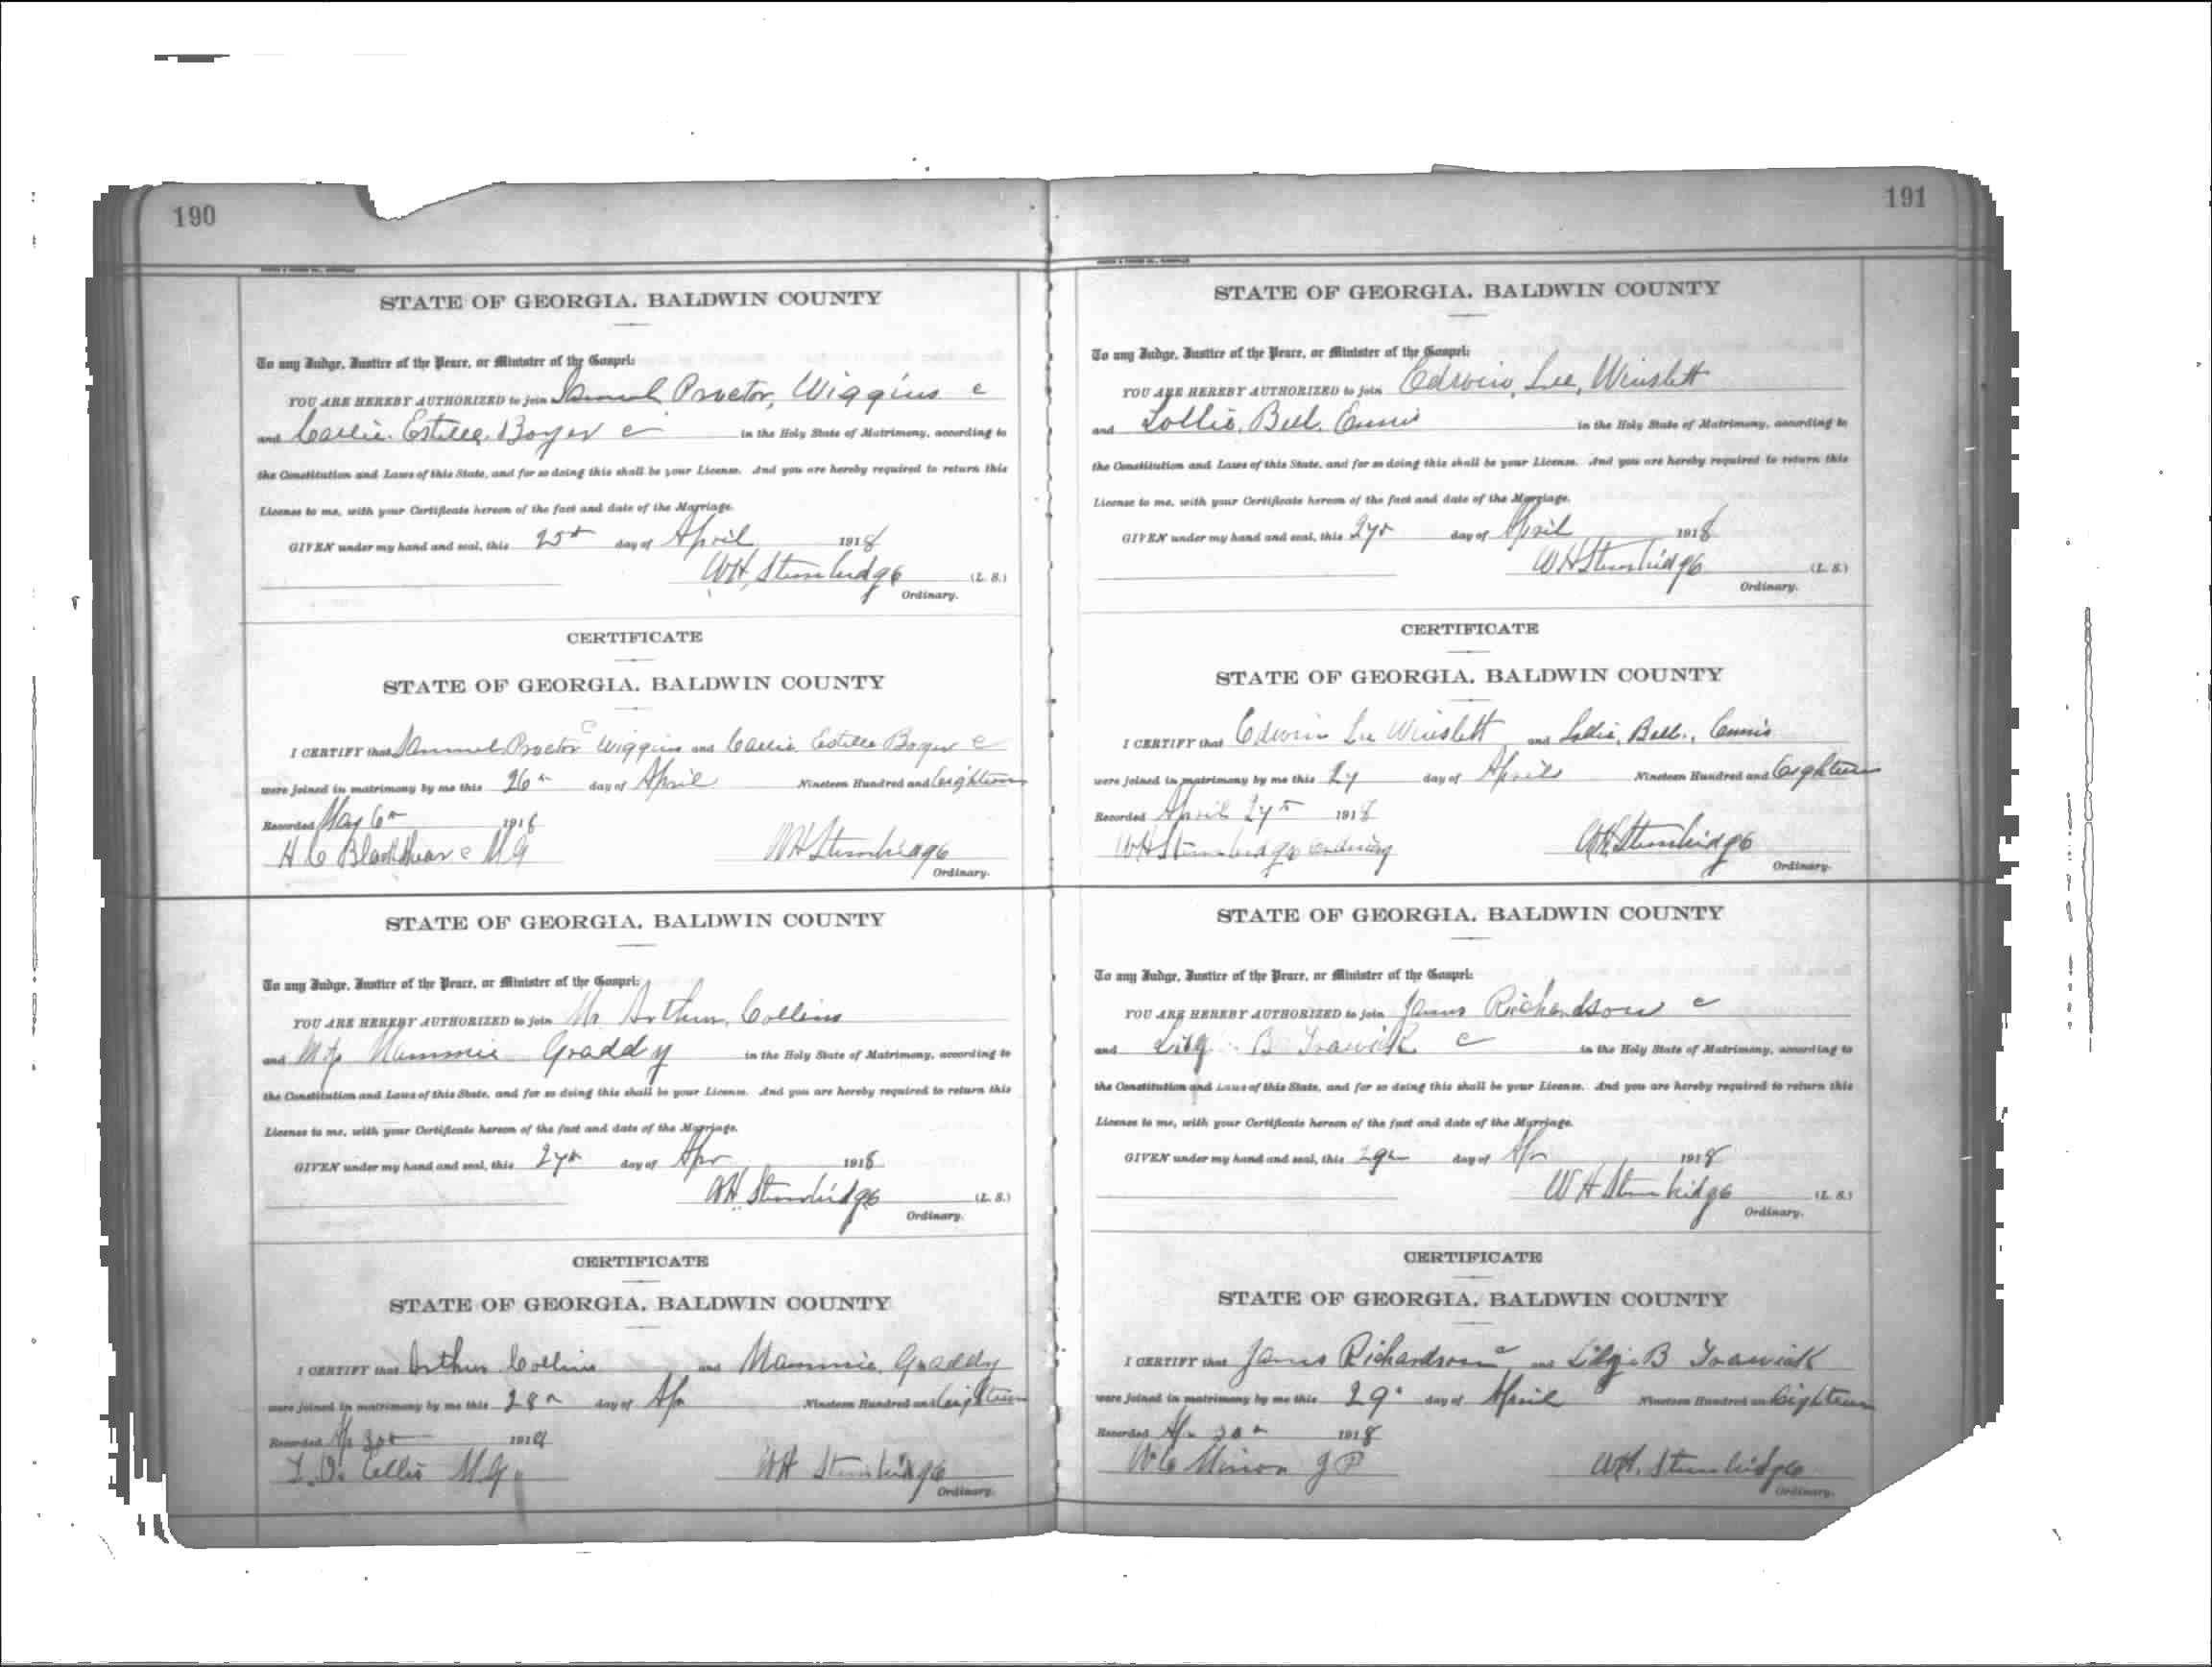 190
STATE OF GEORGIA. BALDWIN COUNTY
To any Judge, Justice of the Peace, or Minister of the Gospel:
YOU ARE HEREBY AUTHORIZED to join Samuel Proctor, Wiggins c
and Callie. Estelle. Boyer c in the Holy State of Matrimony, according to
the Constitution and Laws of this State, and for so doing this shall be your License. And you are hereby required to return this
License to me, with your Certificate hereon of the fact and date of the Marriage.
GIVEN under my hand and seal, this 25th day of April 1918
WH Stembridge (L. S.)
Ordinary.
CERTIFICATE
STATE OF GEORGIA. BALDWIN COUNTY
I CERTIFY that Samuel Proctor c Wiggins and Callie Estelle Boyer c
were joined in matrimony by me this 26th day of April Nineteen Hundred and Eighteen
Recorded May 6th 1918
H C Blackshear c M G WH Stembridge
Ordinary.
STATE OF GEORGIA. BALDWIN COUNTY
To any Judge, Justice of the Peace, or Minister of the Gospel:
YOU ARE HEREBY AUTHORIZED to join Mr Arthur. Collins
and Mammie Graddy in the Holy State of Matrimony, according to
the Constitution and Laws of this State, and for so doing this shall be your License. And you are hereby required to return this
License to me, with your Certificate hereon of the fact and date of the Marriage.
GIVEN under my hand and seal, this 27th day of Apr 1918
WH. Stembridge (L. S.)
Ordinary.
CERTIFICATE
STATE OF GEORGIA. BALDWIN COUNTY
I CERTIFY that Arthur Collins and Mammie. Graddy
were joined in matrimony by me this 28th day of Apr Nineteen Hundred and Eighteen
Recorded Ap 30th 1918
Ellis M.G. WH Stembridge
Ordinary.
191
STATE OF GEORGIA. BALDWIN COUNTY
To any Judge, Justice of the Peace, or Minister of the Gospel:
YOU ARE HEREBY AUTHORIZED to join Edwin, Lee, Winslett
and Lollie. Bell. Ennis in the Holy State of Matrimony, according to
the Constitution and Laws of this State, and for so doing this shall be your License. And you are hereby required to return this
License to me, with your Certificate hereon of the fact and date of the Marriage.
GIVEN under my hand and seal, this 27th day of April 1918
WH Stembridge (L. S.)
Ordinary.
CERTIFICATE
STATE OF GEORGIA. BALDWIN COUNTY
I CERTIFY that Edwin Lee Winslett and Lollie, Bell., Ennis
were joined in matrimony by me this 27 day of April Nineteen Hundred and Eighteen
Recorded April 27th 1918
WH Stembridge Ordinary WH Stembridge
Ordinary.
STATE OF GEORGIA. BALDWIN COUNTY
To any Judge, Justice of the Peace, or Minister of the Gospel:
YOU ARE HEREBY AUTHORIZED to join James Richardson c
and B Trawick c in the Holy State of Matrimony, according to
the Constitution and Laws of this State, and for so doing this shall be your License. And you are hereby required to return this
License to me, with your Certificate hereon of the fact and date of the Marriage.
GIVEN under my hand and seal, this 29th day of Apr 1918
WH Stembridge (L. S.)
Ordinary.
CERTIFICATE
STATE OF GEORGIA. BALDWIN COUNTY
I CERTIFY that James Richardson c and B Trawick
were joined in matrimony by me this 29 day of April Nineteen Hundred and Eighteen
Recorded Ap 30th 1918
W C Minor J P WH. Stembridge
Ordinary.